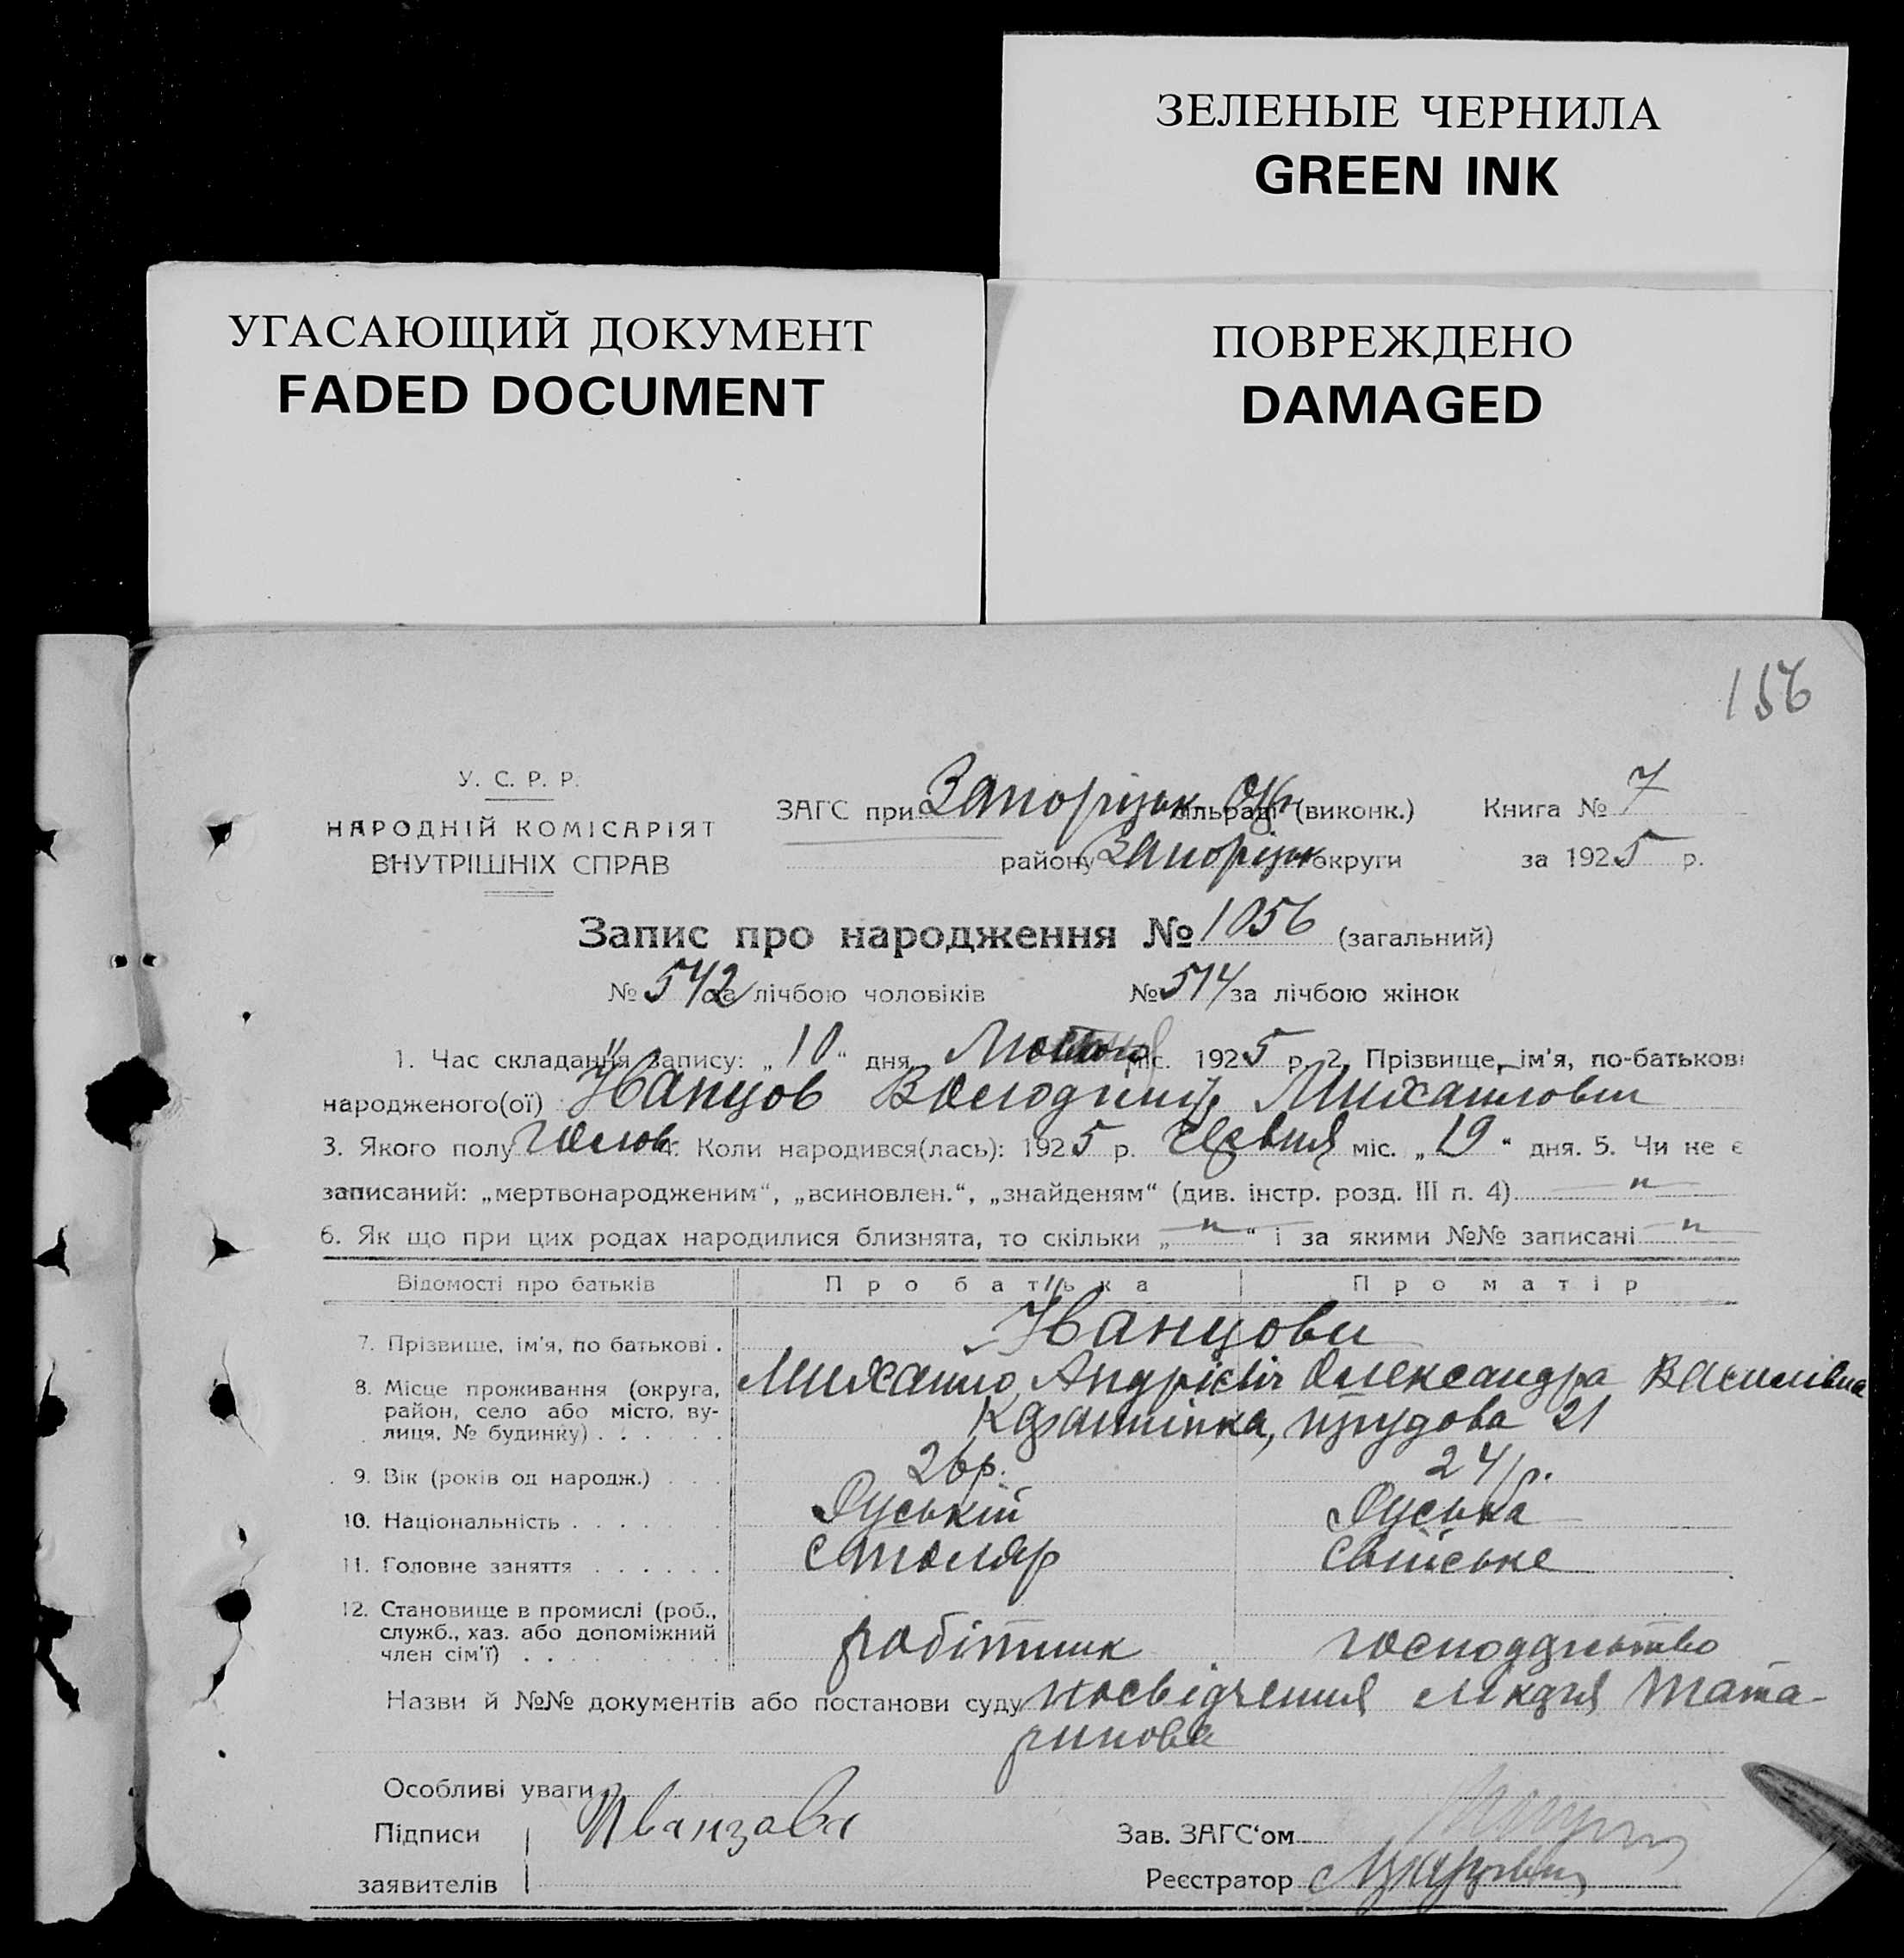 ЗЕЛЕНЫЕ ЧЕРНИЛА
GREEN INK
УГАСАЮЩИЙ ДОКУМЕНТ
FADED DOCUMENT
ПОВРЕЖДЕНО
DAMAGED
156
У. С. Р. Р.
НАРОДНІЙ КОМІСАРІЯТ
ВНУТРІШНІХ СПРАВ
ЗАГС при Запорізьк Окр сільраді (виконк.) Книга № 7
району Запорізьк округи за 1925 р.
Запис про народження № 1056 (загальний)
№ 542 за лічбою чоловіків № 514 за лічбою жінок
1. Час складання запису: „ 10 “ дня міс. 1925 р. 2. Прізвище, ім'я, по-батькові
народженого(ої) Іванцов Володимір Михайлович
3. Якого полу чолов. 4. Коли народився(лась): 1925 р. Червня міс. „ 19 “ дня. 5. Чи не є
записаний: „мертвонародженим“, „всиновлен.“, „знайденям“ (див. інстр. розд. III п. 4) — " —
6. Як що при цих родах народилися близнята, то скільки „ — " — “ і за якими №№ записані — " —
Відомості про батьків Про батька Про матір
7. Прізвище, ім'я, по батькові . Іванцови
8. Місце проживання (округа, район, село або місто, вулиця, № будинку) . Михайло Андрієвіч Олександра Василівна
трудова 21
9. Вік (років од народж.) . . . 26 р. 24 р.
10. Національність . . . . . . Руський Руська
11. Головне заняття . . . . . . столяр Свійське
12. Становище в промислі (роб., служб., хаз. або допоміжний член сім'ї) . . . робітник господарство
Назви й №№ документів або постанови суду посвідчення лікаря Тата-
ринова
Особливі уваги
Підписи Иванцова Зав. ЗАГС'ом
заявителів Реєстратор